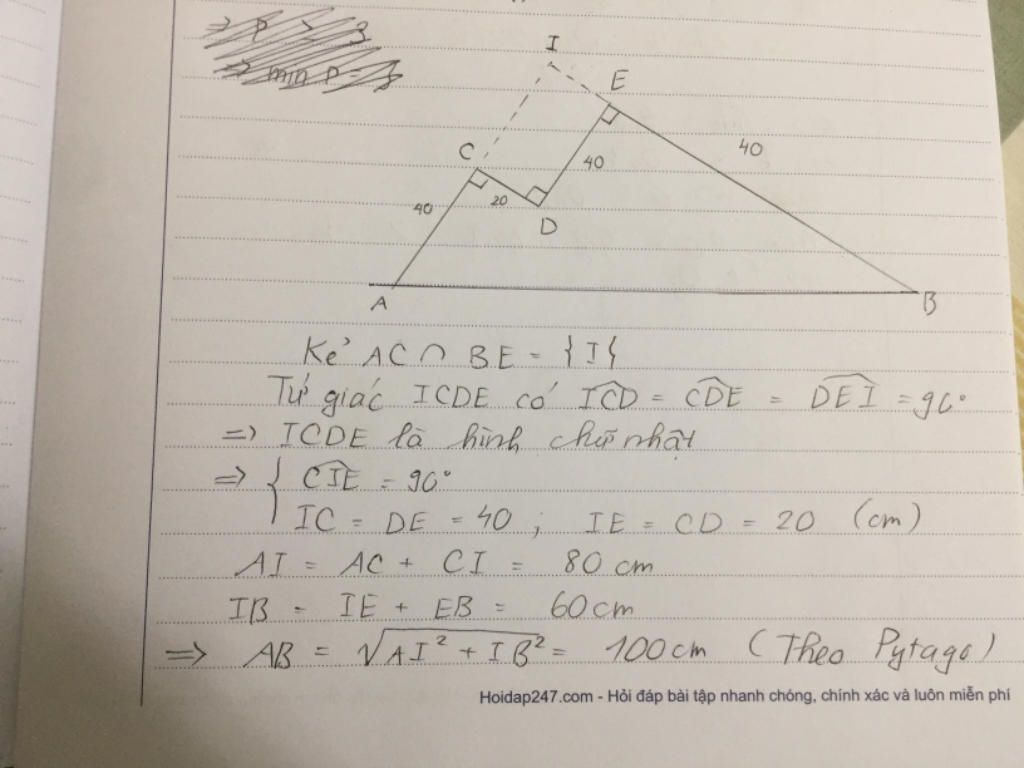 => P > 3
=> min P = 3
I
E
C
40
40
40
20
D
A
B
Kẻ AC ∩ BE = {I}
Tứ giác ICDE có ICD = CDE = DEI = 90°
=> ICDE là hình chữ nhật
=> { CIE = 90°
IC = DE = 40 ; IE = CD = 20 (cm)
AI = AC + CI = 80 cm
IB = IE + EB = 60 cm
=> AB = √AI² + IB² = 100 cm (Theo Pytago)
Hoidap247.com - Hỏi đáp bài tập nhanh chóng, chính xác và luôn miễn phí